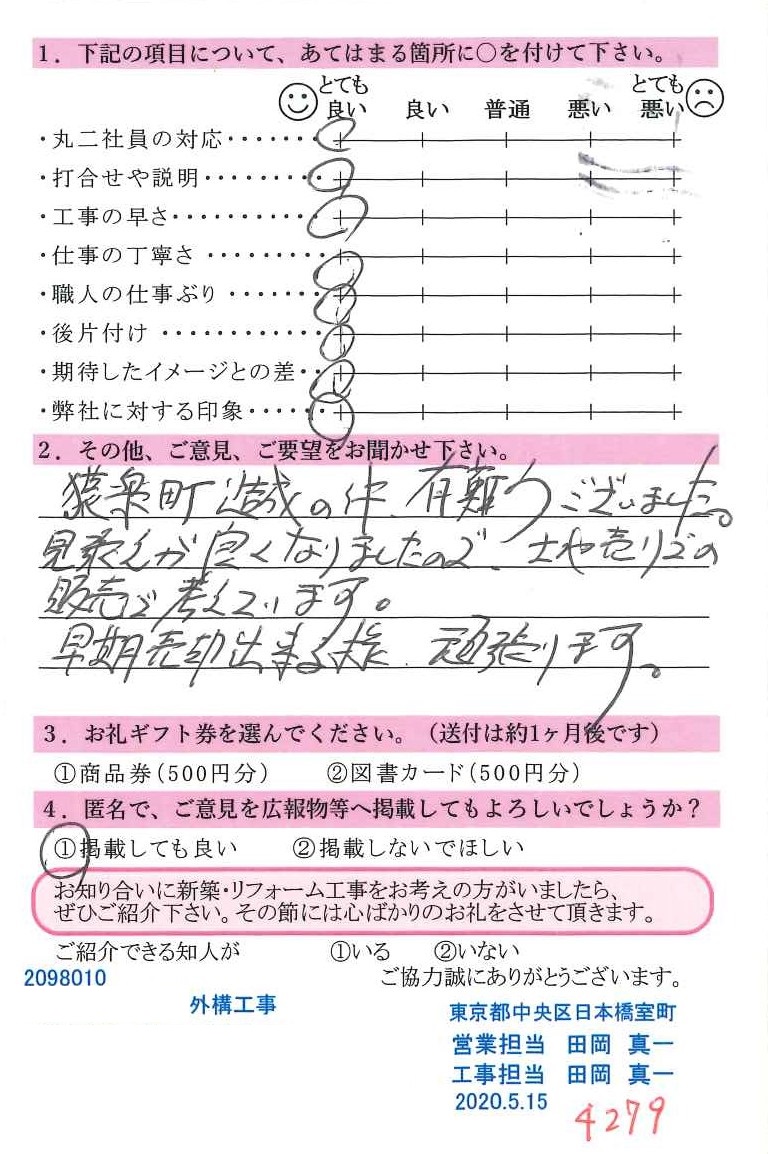 1. 下記の項目について、あてはまる箇所に○を付けて下さい。
とても良い 良い 普通 悪い とても悪い
・丸二社員の対応・・・・・・・
・打合せや説明・・・・・・・・
・工事の早さ・・・・・・・・・・
・仕事の丁寧さ・・・・・・・・
・職人の仕事ぶり・・・・・・・
・後片付け・・・・・・・・・・・
・期待したイメージとの差・・
・弊社に対する印象・・・・・
2. その他、ご意見、ご要望をお聞かせ下さい。
猿楽町造成の件、有難うございました。
見栄えが良くなりましたので、土地売りでの
販売で考えています。
早期売却出来る様、頑張ります。
3. お礼ギフト券を選んでください。(送付は約1ヶ月後です)
①商品券(500円分) ②図書カード(500円分)
4. 匿名で、ご意見を広報物等へ掲載してもよろしいでしょうか?
①掲載しても良い ②掲載しないでほしい
お知り合いに新築・リフォーム工事をお考えの方がいましたら、
ぜひご紹介下さい。その節には心ばかりのお礼をさせて頂きます。
ご紹介できる知人が ①いる ②いない
2098010 ご協力誠にありがとうございます。
外構工事 東京都中央区日本橋室町
営業担当 田岡 真一
工事担当 田岡 真一
2020.5.15
4279